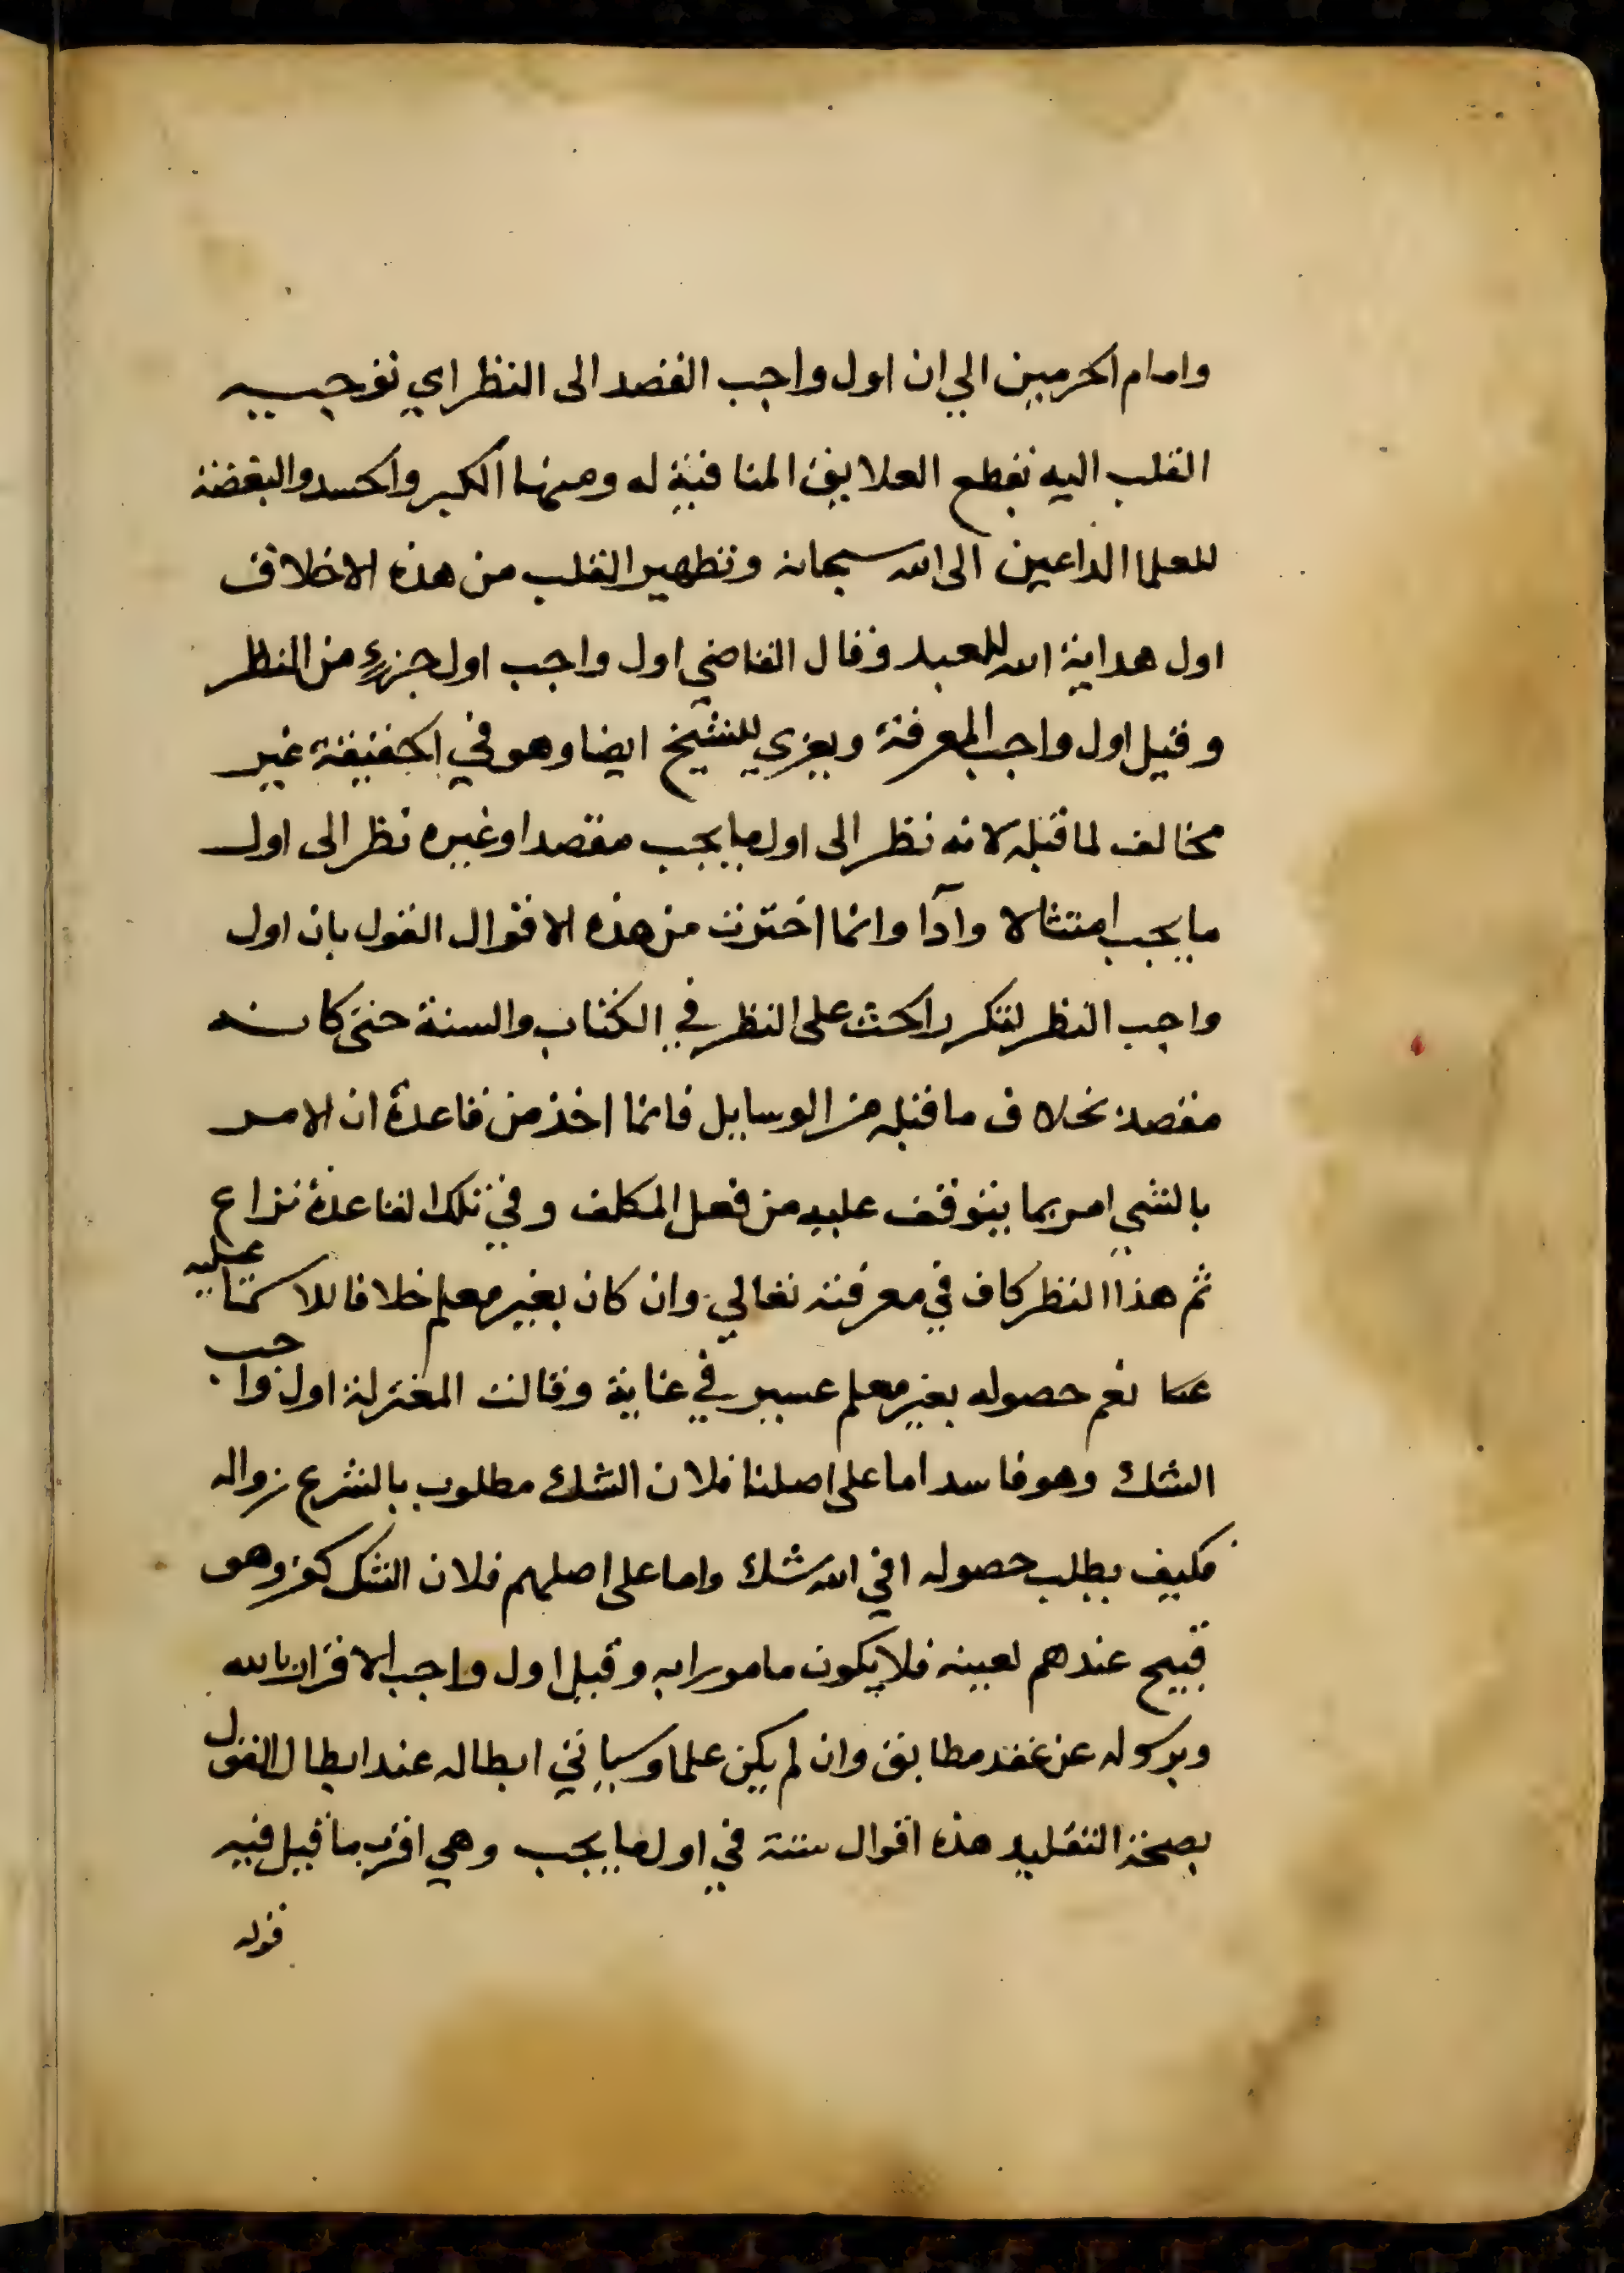 وامام الحرمين الي ان اول واجب القصد الى النظر اي توجيه
القلب اليه بقطع العلايق المنافية له ومنها الكبر والحسد والبغضة
للعلما الداعين الى الله سبحانه وتطهير القلب من هذه الاخلاق
اول هداية الله للعبد وقال القاضي اول واجب اول جزء من النظر
وقيل اول واجب المعرفة ويعزي للشيخ ايضا وهو في الحقيقة غير
مخالف لما قبله لانه نظر الى اول ما يجب مقصدا وغيره نظر الى اول
ما يجب امتثالا وآدا وانما اخترت من هذه الاقوال القول بان اول
واجب النظر لتكرر الحث على النظر في الكتاب والسنة حتى كانه
مقصد بخلاف ما قبله من الوسايل فانما اخذ من قاعدة ان الامر
بالشي امر بما يتوقف عليه من فعل المكلف وفي تلك القاعدة نزاع
ثم هذا النظر كاف في معرفته تعالي وان كان بغير معلم خلافا للاسمنا عليه
عىا نعم حصوله بغير معلم عسير في غاية وقالت المعتزلة اول واجب
الشك وهو فاسد اما على اصلنا فلان الشك مطلوب بالشرع زواله
فكيف يطلب حصوله افي الله شك واما على اصلهم فلان الشك كفر وهو
قبيح عندهم لعينه فلا يكون مامورا به وقيل اول واجب الاقرار بالله
وبرسوله عن عقد مطابق وان لم يكن علما وسياتي ابطاله عند ابطال القول
بصحة التقليد هذه اقوال ستة في اول ما يجب وهي اقرب ما قيل فيه
قوله